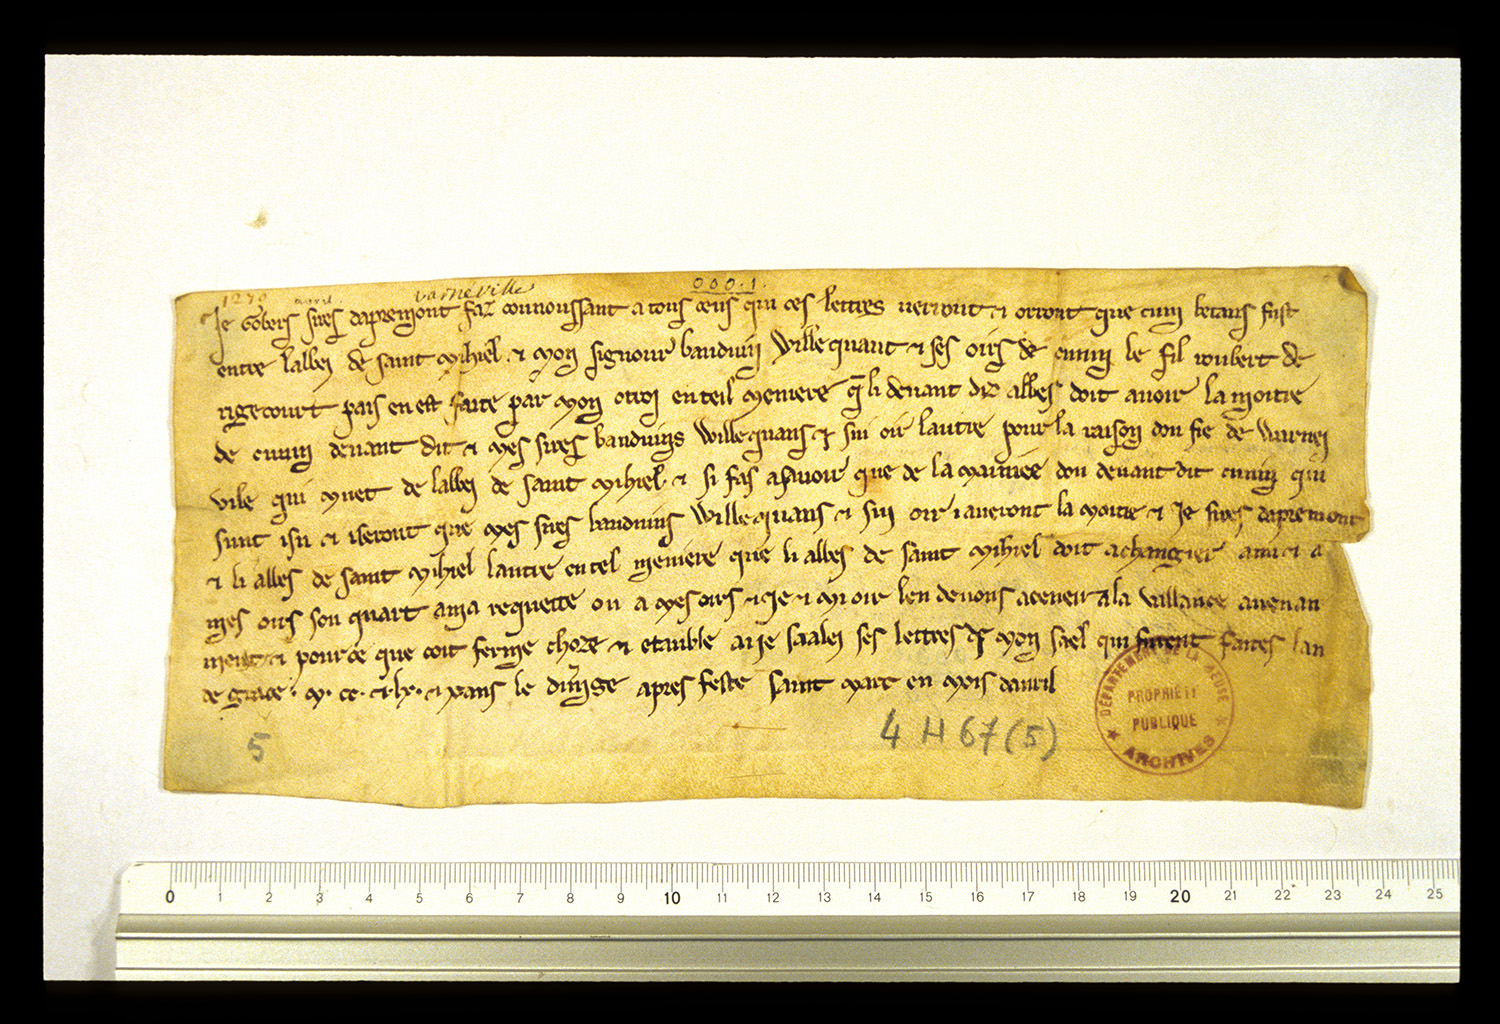 1270 avril. varneville 000.1.
Je Gobers sires dapremont faz connoussant a tous ceus qui ces lettres verront & orront que cum betans fust
entre labbei de saint Mihiel & mon signour bauduin Willequant & ses oirs de cunin le fil roubert de
rigecourt pais en est faite par mon otroi en teil meniere q li devant diz abbes doit avoir la moitie
de cunin devant dit & mes sires bauduins Willequans & sui oir lautre pour la raison dou fie de Warnei
vile qui muet de labbei de saint Mihiel & si fas asavoir que de la mainiee dou devant dit cunin qui
sunt isu & iseront que mes sires bauduins Willequans & sui oir i averont la moitie & Je sires dapremont
& li abbes de saint Mihiel lautre en tel meniere que li abbes de saint Mihiel doit achangier a mi & a
mes oirs son quart a ma requeste ou a mes oirs & Je & mi oir len devons aceneir a la vaillance avenan
ment & pour ce que coit ferme chose & estauble ai je saalei ses lettres de mon sael qui furent faites lan
de grace . M. cc. & lx. & x ans le dimenge apres feste saint Marc en mois davril
5
4 H 67 (5)
DÉPARTEMENT DE LA MEUSE
PROPRIÉTÉ
PUBLIQUE
ARCHIVES
0 1 2 3 4 5 6 7 8 9 10 11 12 13 14 15 16 17 18 19 20 21 22 23 24 25